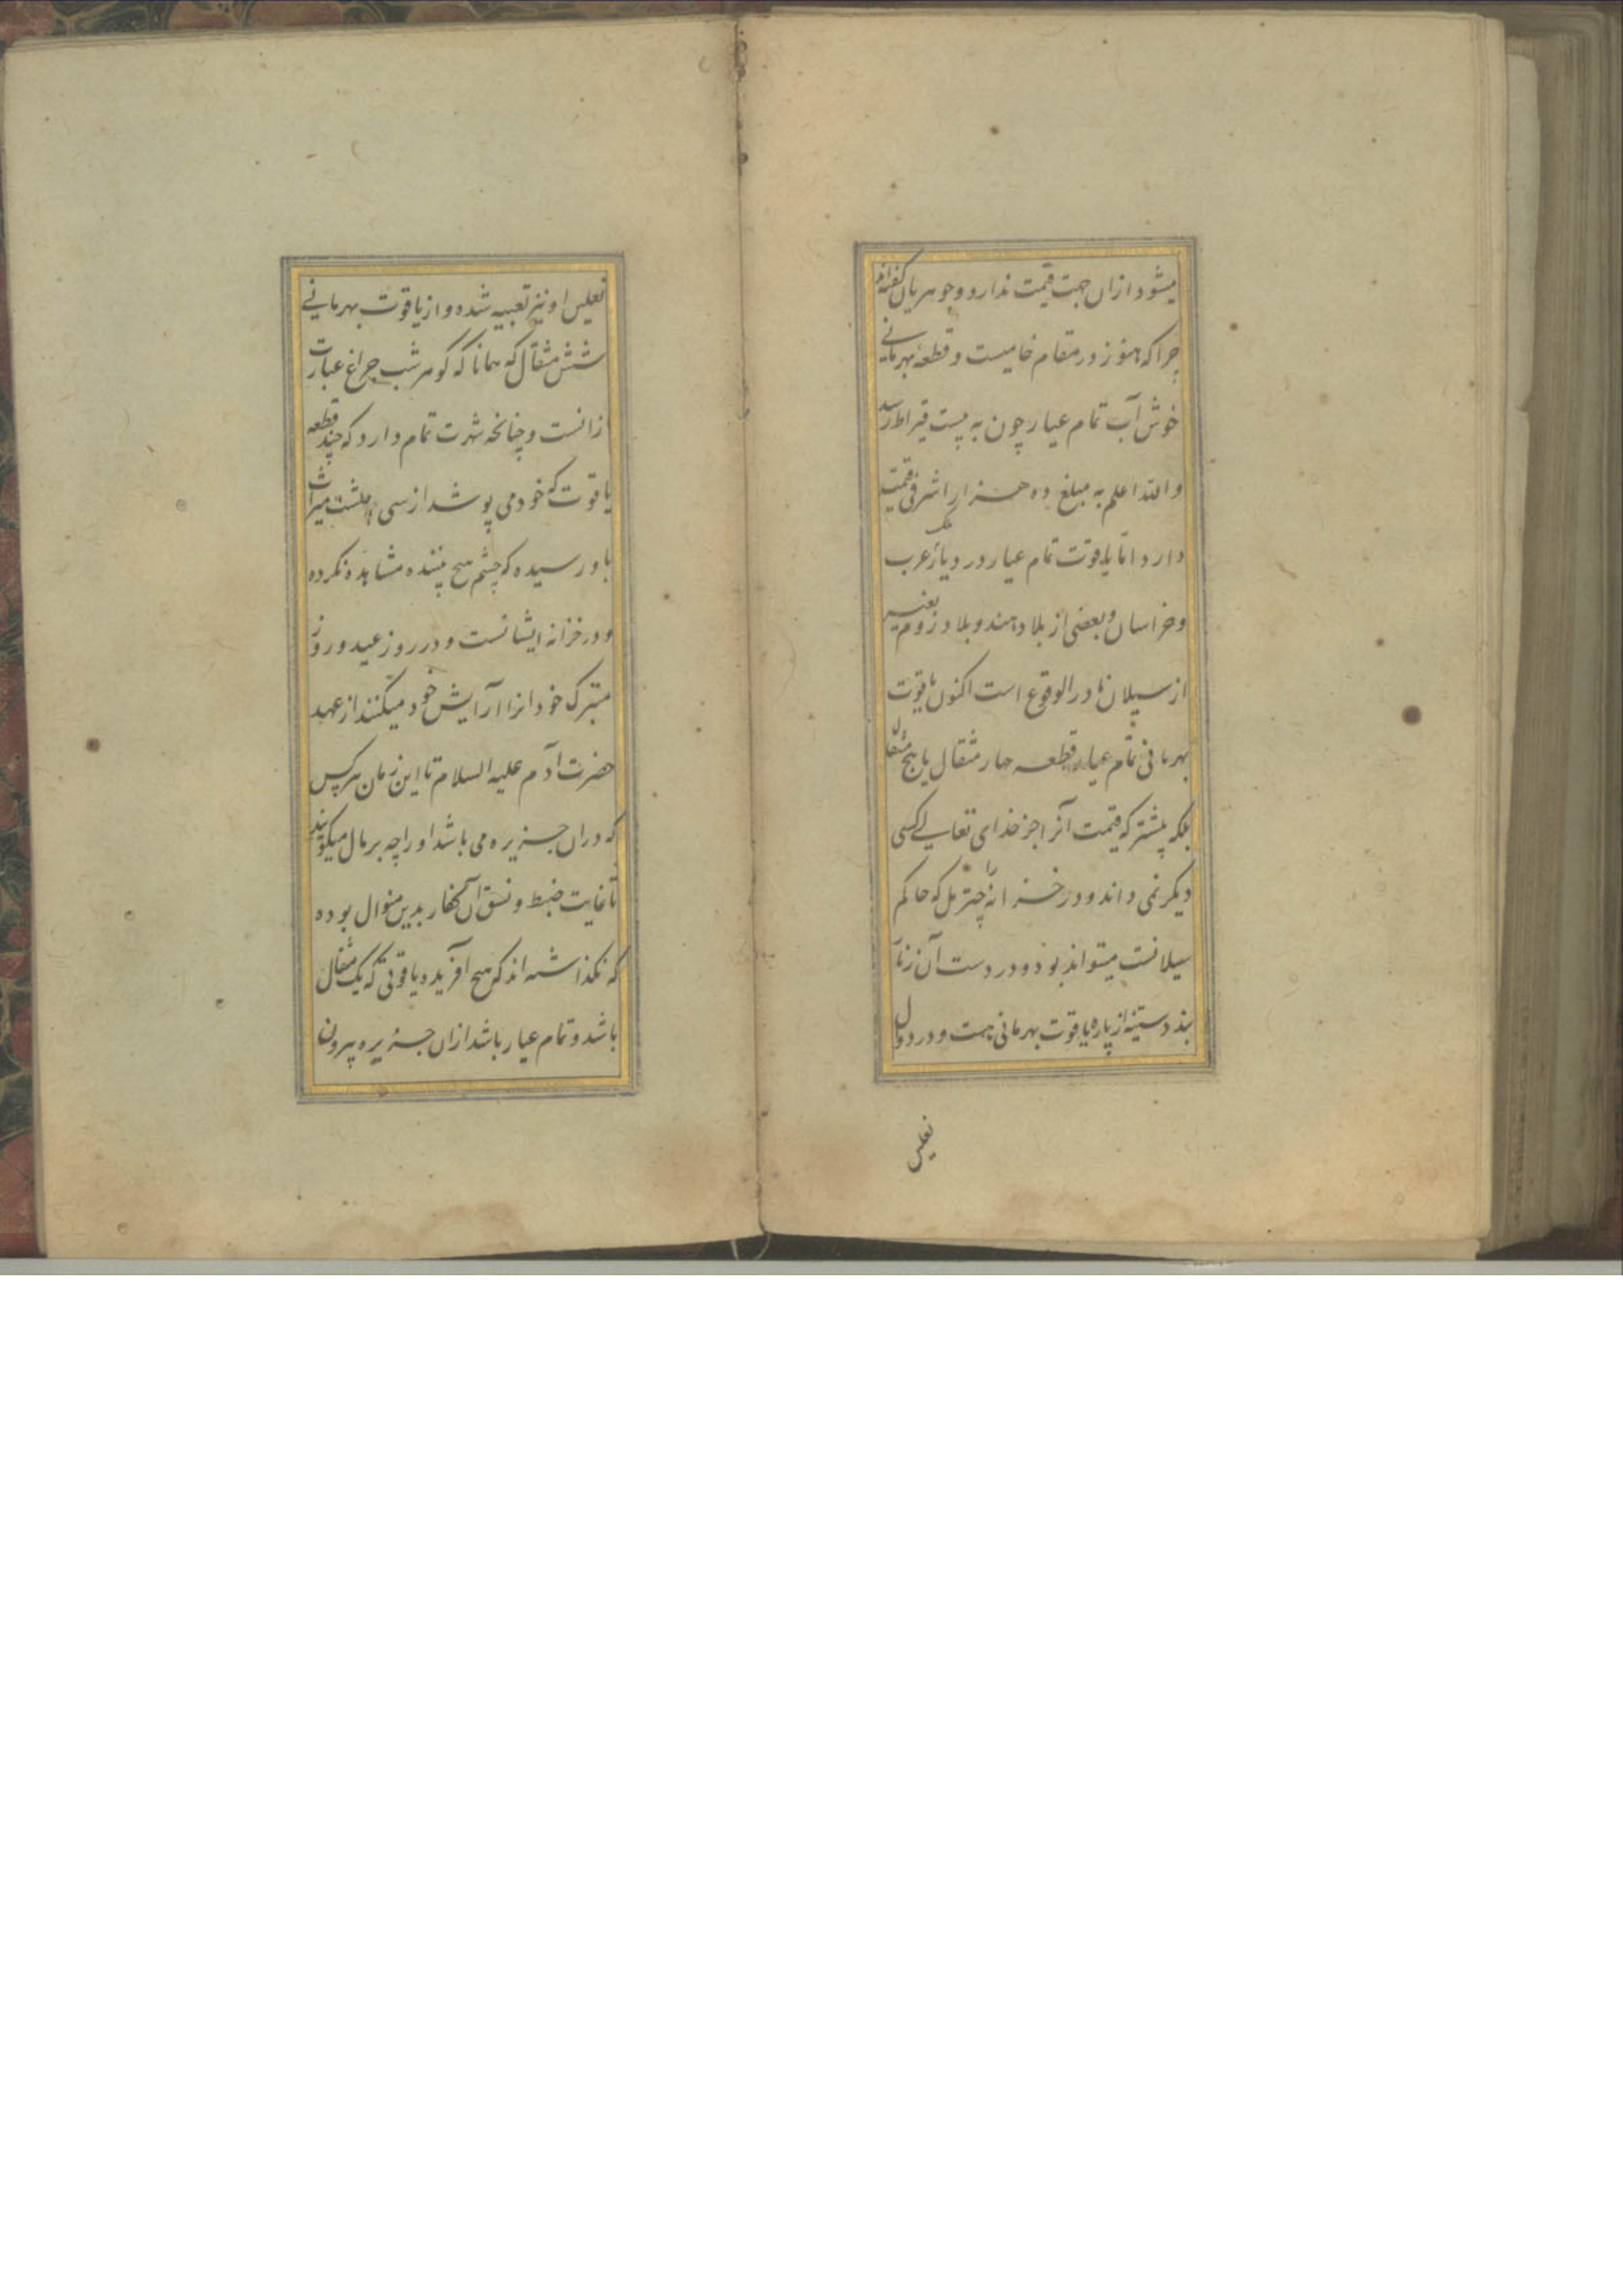 میشود ازان جهت قیمت ندارد و جوهریان گفته‌اند
چرا که هنوز در مقام خامیست و قطعهٔ بهرمانے
خوش آب تمام عیار چون به بیست قیراط رسد
والله اعلم به مبلغ ده هزار اشرفی قیمت
دارد اما یاقوت تمام عیار در دیار عرب
و خراسان و بعضی از بلاد هند و بلاد روم بغیر
از سیلان نادر الوقوع است اکنون یاقوت
بهرمانی تمام عیار قطعه چار مثقال یا پنج مثقال
بلکه بیشتر که قیمت آنرا جز خدای تعالے کسی
دیگر نمی داند و در خزانه که حاکم
سیلانست میتواند بود و در دست آن زنار
بند دستینه از پاره یاقوت بهرمانی هست و در دوال
نعلین
نعلین او نیز تعبیه شده و از یاقوت بهرمانے
شش مثقال که همانا که گوهر شب چراغ عبارت
زانست و چنانچه شهرت تمام دارد که چند قطعه
یاقوت که خود می پوشد از سی پشت میراث
باو رسیده که چشم هیچ بیننده مشاهده نکرده
و در خزانه ایشانست و در روز عید و روز
متبرک خود انرا آرایش خود میکنند از عهد
حضرت آدم علیه السلام تا این زمان هر کس
که دران جزیره می باشد او را چه برمال میگویند
تا غایت ضبط و نسق آن کفار بدین منوال بوده
که نگذاشته اند که هیچ آفریده یاقوتی که یک مثقال
باشد و تمام عیار باشد ازان جزیره بیرون